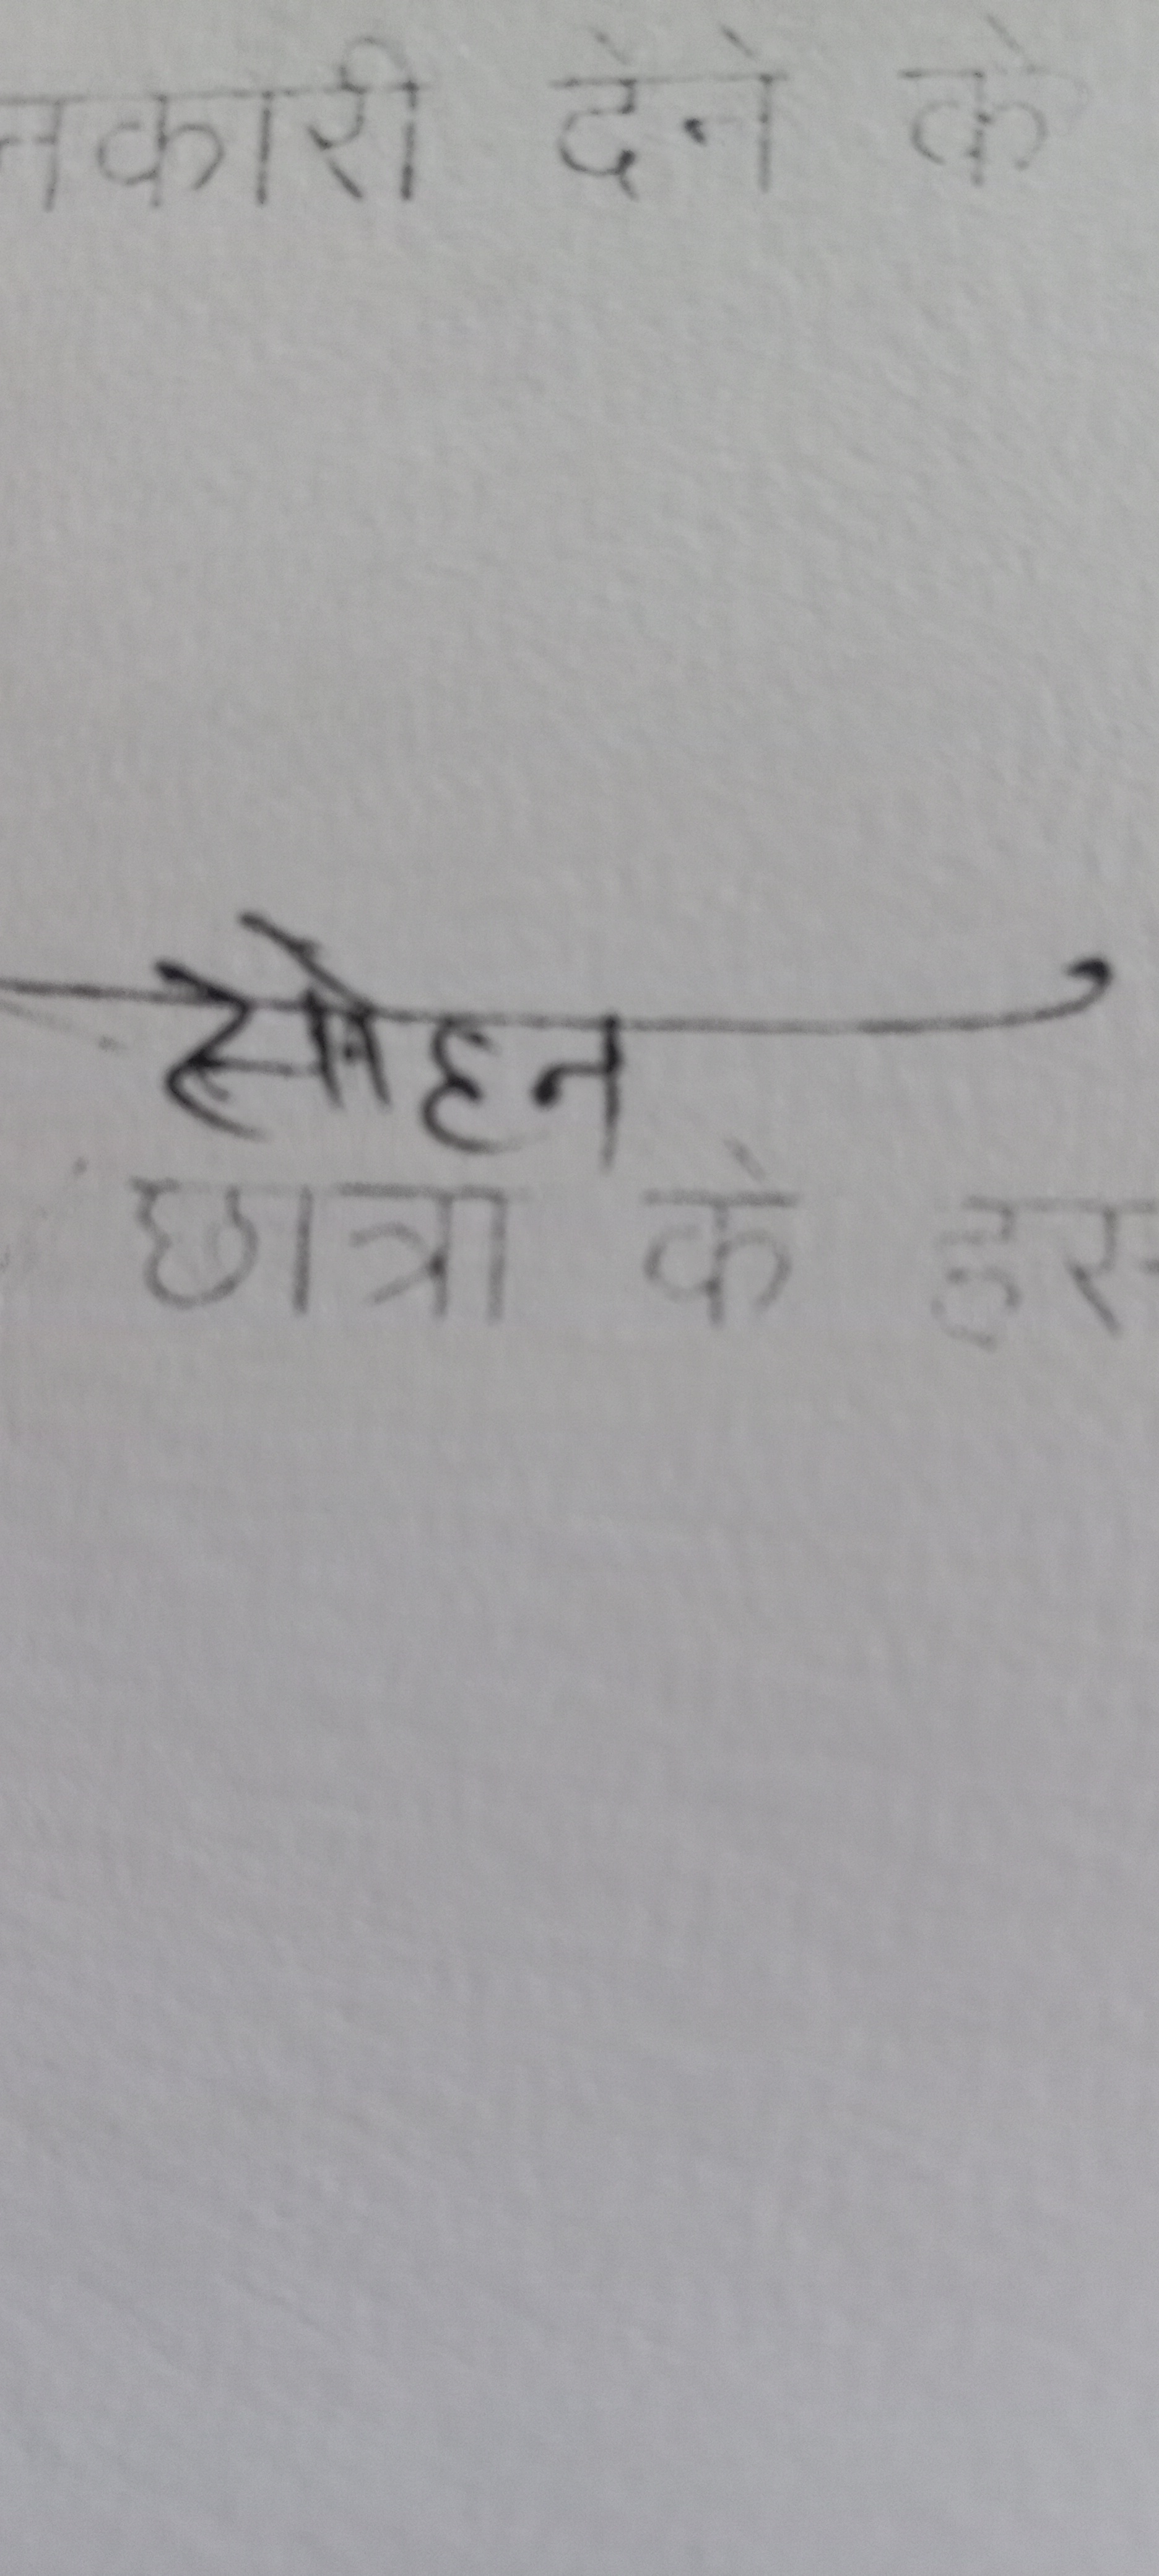 नकारी देने के
सोहन
छात्रा के हस